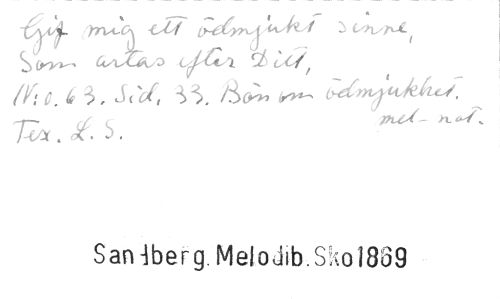 Gif mig ett ödmjukt sinne,
Som artas efter Ditt,
N:o. 63. Sid. 33. Bön om ödmjukhet.
mel-not.
Tex. L. S.
Sandberg. Melodib. Sko 1869